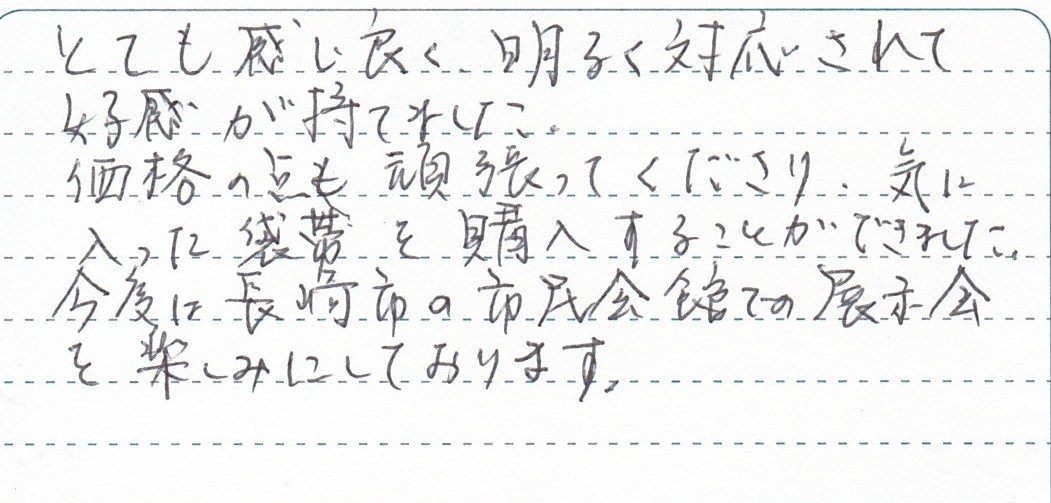 とても感じ良く、明るく対応されて
好感が持てました。
価格の点も頑張ってくださり、気に
入った袋帯を購入することができました。
今度は長崎市の市民会館での展示会
を楽しみにしております。